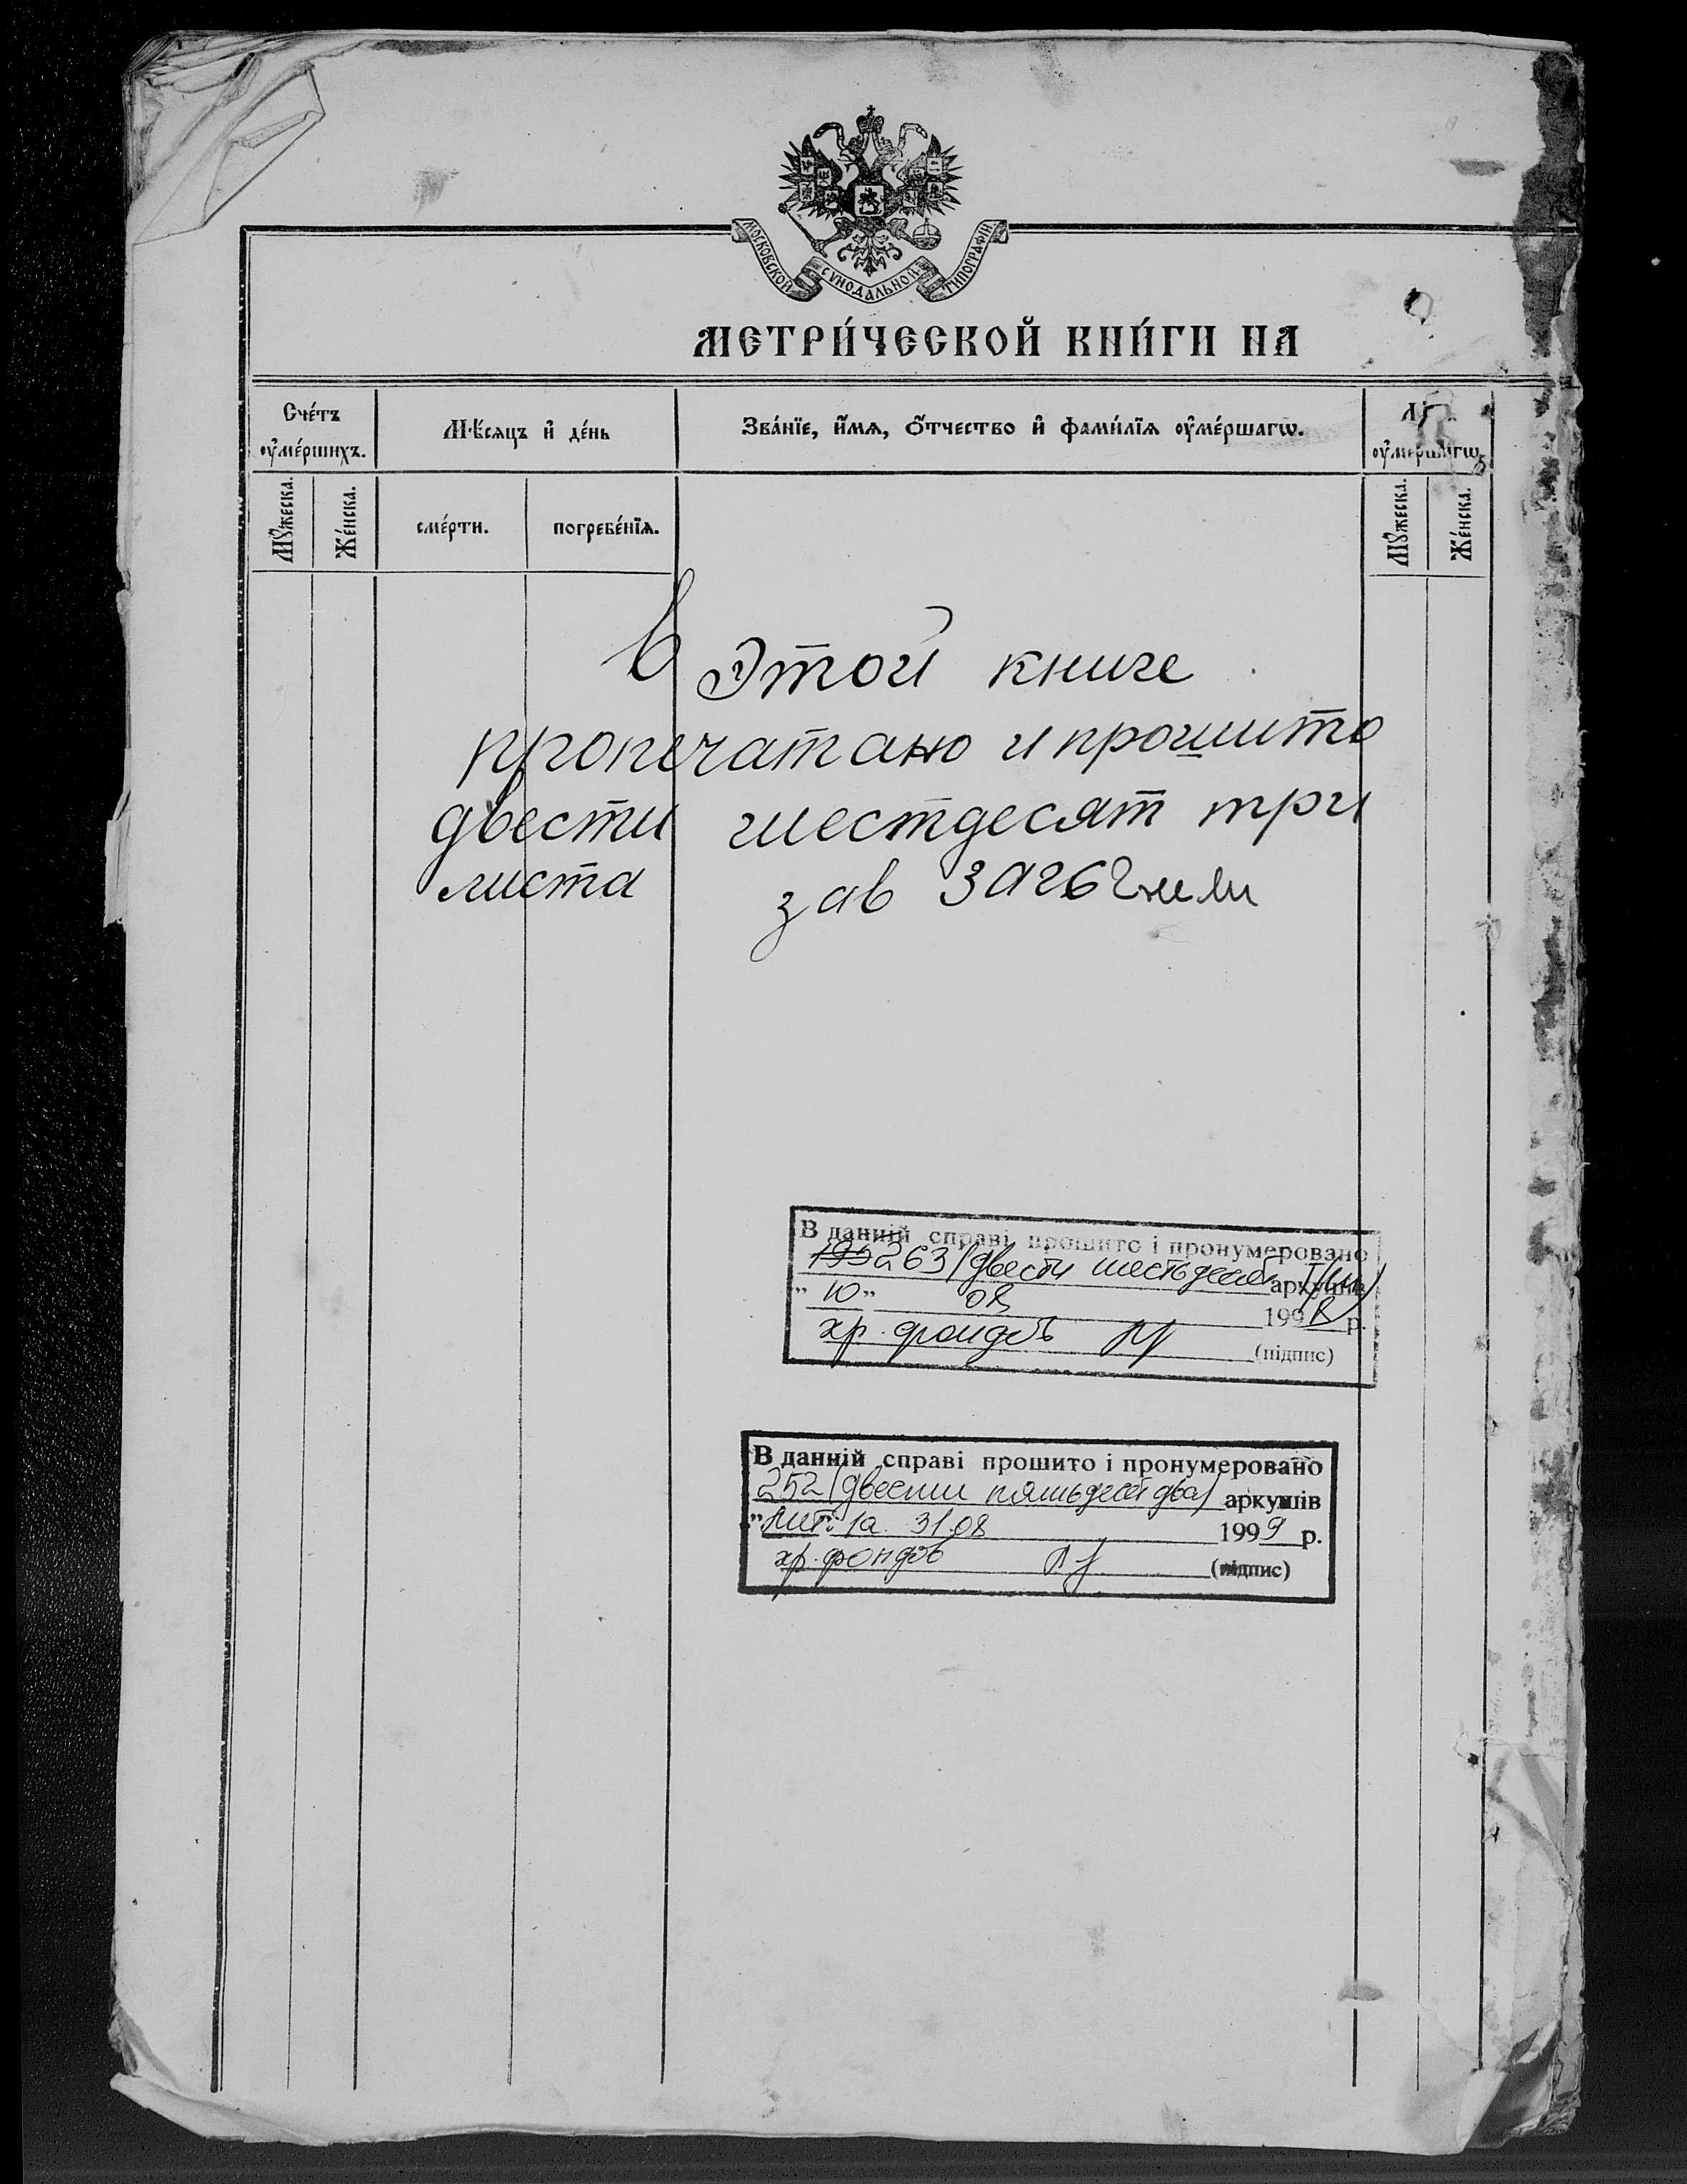 МОСКОВСКОЙ СѴНОДАЛЬНОЙ ТИПОГРАФІИ
МЕТРИ́ЧЕСКОЙ КНИ́ГИ НА
Сче́тъ оу҆ме́ршихъ.
Мѣ́сяцъ и҆ де́нь
Зва́нїе, и҆́мѧ, ѻ҆́тчество и҆ фами́лїѧ оу҆ме́ршагѡ.
оу҆ме́ршагѡ
Мꙋ́жеска.
Же́нска.
сме́рти.
погребе́нїѧ.
Мꙋ́жеска.
Же́нска.
В этой книге
пропечатано и прошито
двести шестдесят три
листа зав
В данній справі прошито і пронумеровано
195 263 (двести шестьдесят три) аркушів
" 10 " 08 1998 р.
хр. фондов (підпис)
В данній справі прошито і пронумеровано
252 (двести пятьдесят два) аркушів
" лит. 1а. 31.08 1999 р.
хр. фондов (підпис)